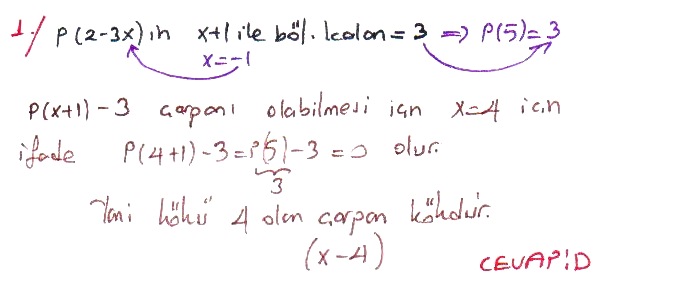 1-/ P(2-3x) in x+1 ile böl. kalan = 3 ⇒ P(5) = 3
x=-1
P(x+1)-3 çarpanı olabilmesi için x=4 için
ifade P(4+1)-3 = P(5)-3 = 0 olur.
3
Yani kökü 4 olan çarpan köküdür.
(x-4)
CEVAP: D